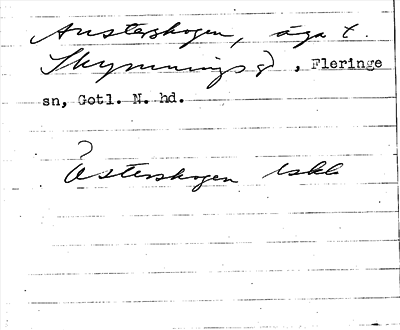 Austerskogen, äga t.
Skymnings, Fleringe
sn, Gotl. N. hd.
Österskogen Iskk